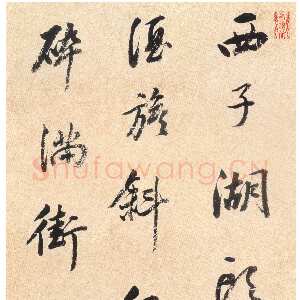 西子湖
酒旗斜
碎满街
Shufawang.CN